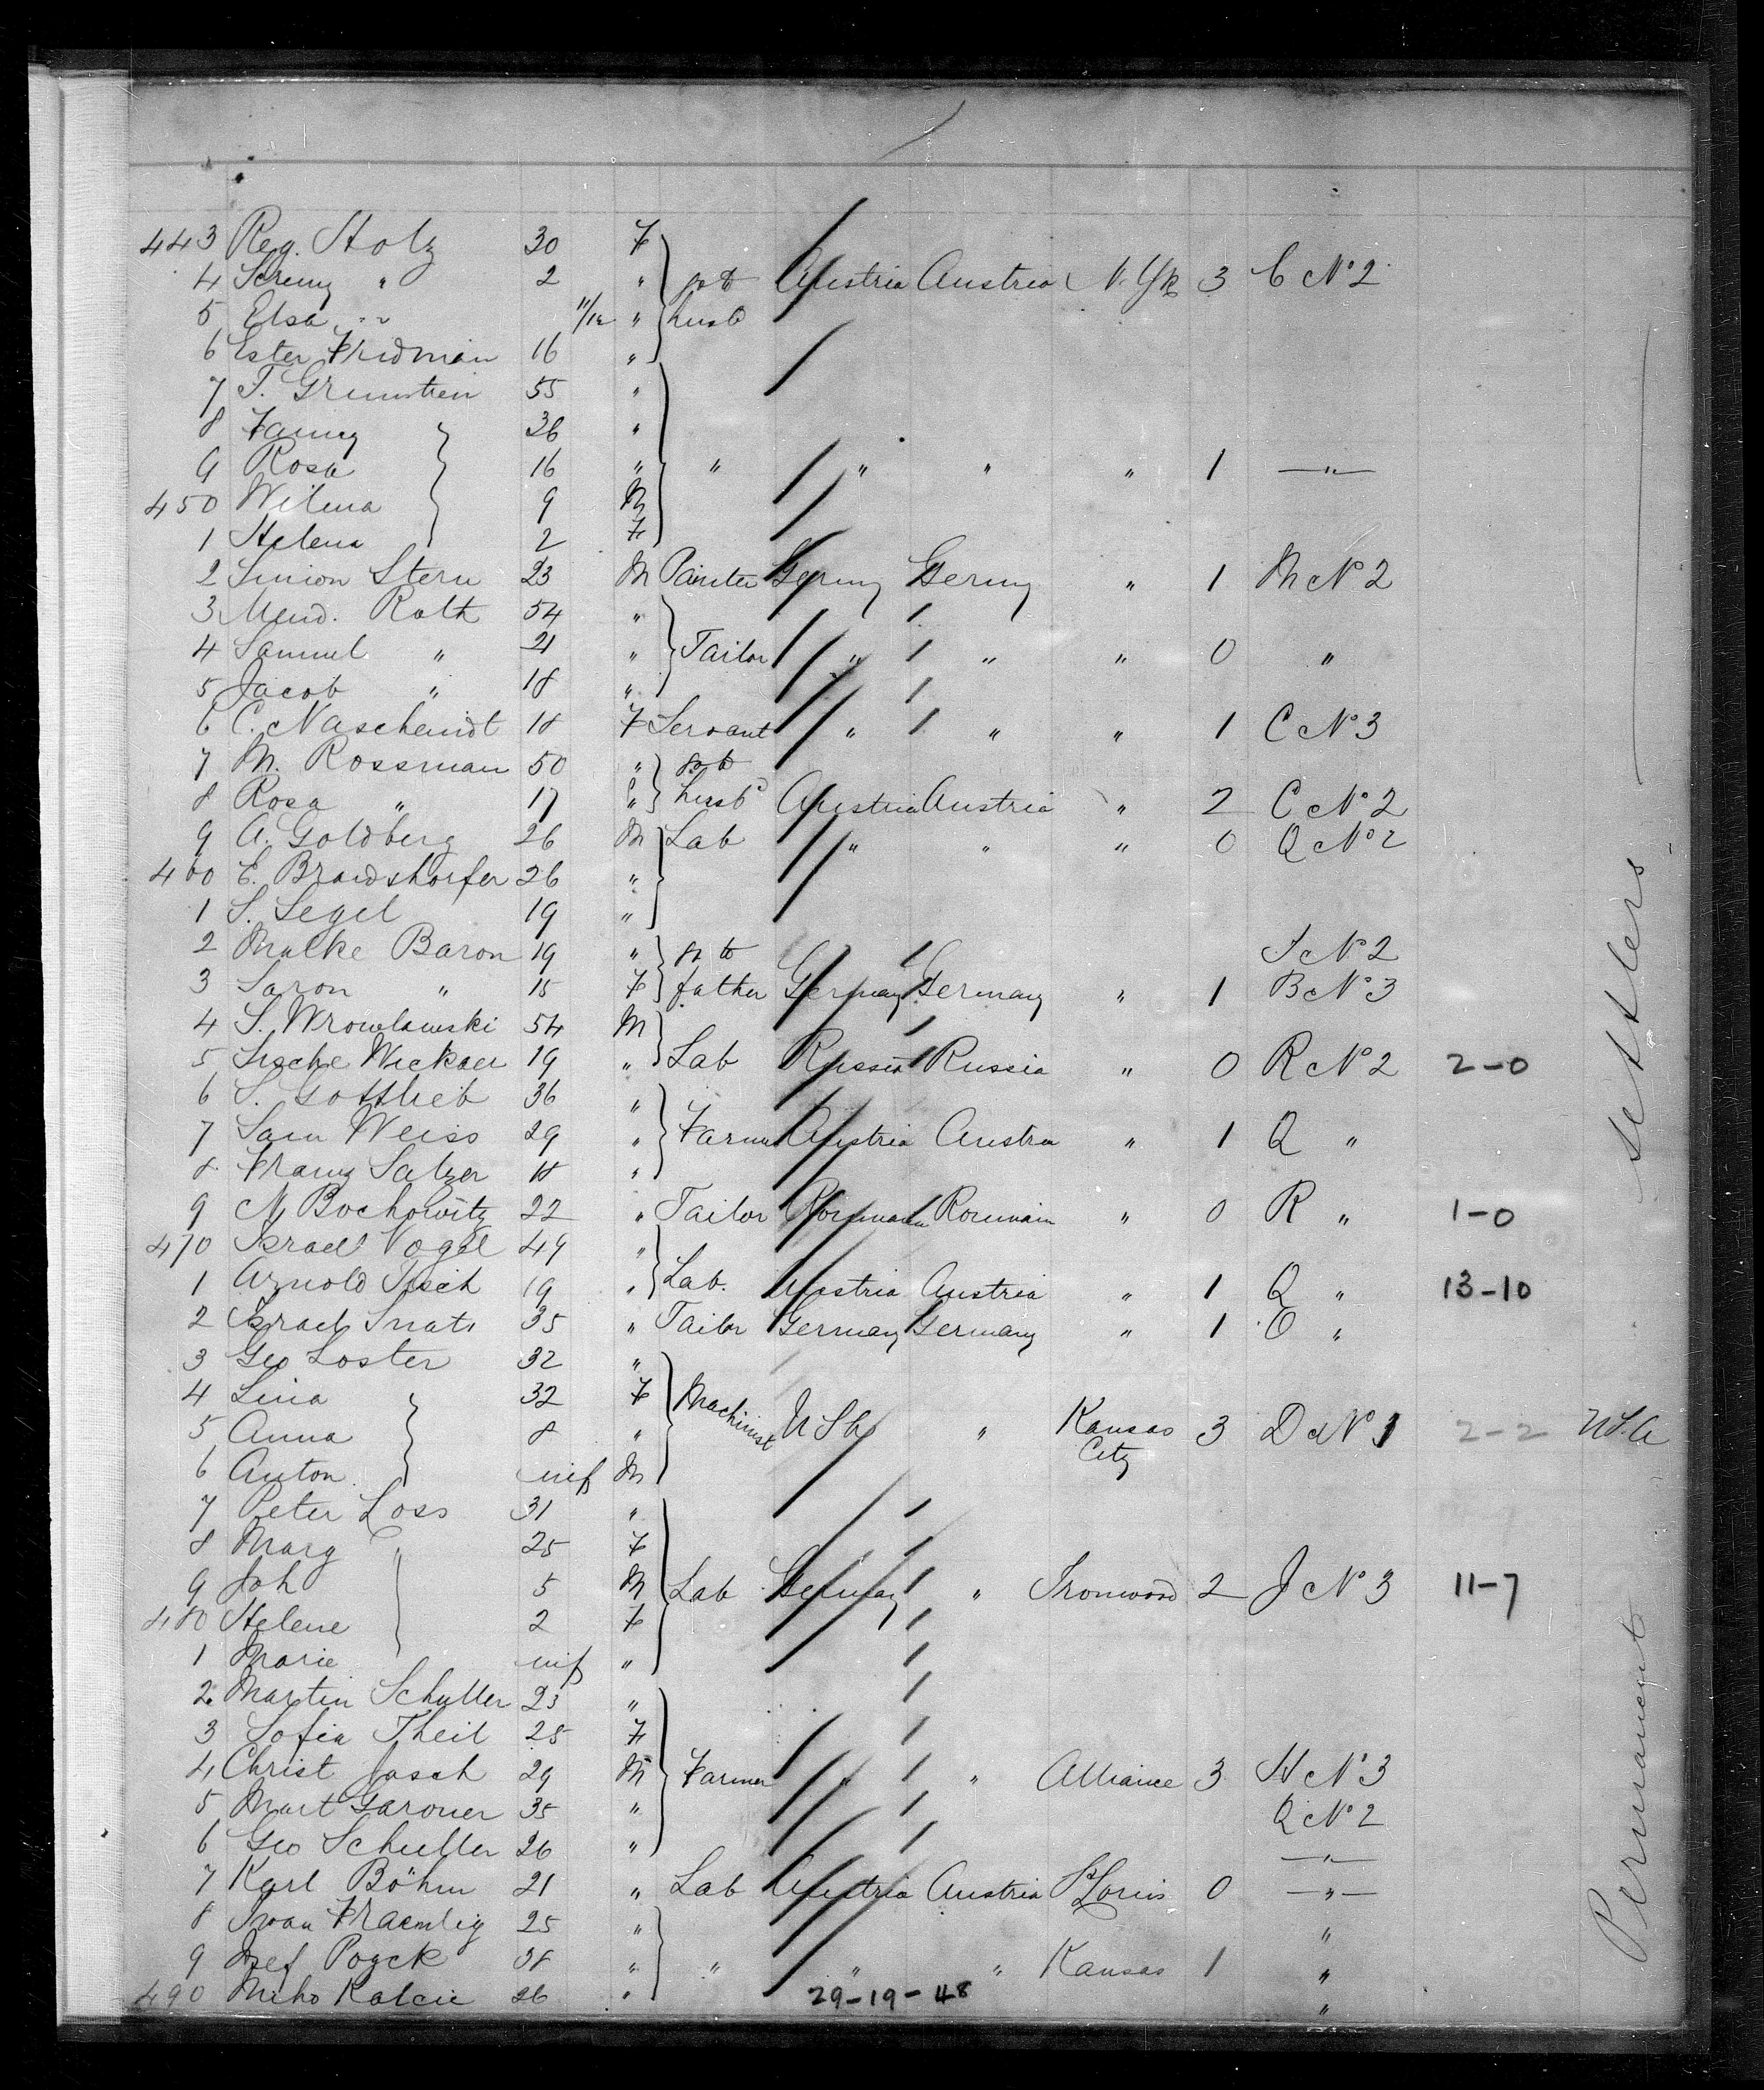 443 Reg. Stolz 30 F
4 Sereny " 2 " go to Austria Austria N. Yk 3 C No 2
5 Elsa " 11/12 " husb
6 Ester Fridman 16 "
7 T. Grunstein 55 "
8 Fanny 26 "
9 Rosa 16 " " " " " 1 — " —
450 Wilma 9 M
1 Helena 2 F
2 Simon Stern 23 M Painter Germy Germy " 1 M No 2
3 Mend. Roth 54 "
4 Samuel " 21 " Tailor " " " 0 "
5 Jacob " 18 "
6 C. Nascheindt 18 F Servant " " " 1 C No 3
7 M. Rossman 50 " go to
8 Rosa " 17 " husbd Austria Austria " 2 C No 2
9 A. Goldberg 26 M Lab " " " 0 Q No 2
460 E. Brawdshorfer 26 "
1 S. Segel 19 "
2 Malke Baron 19 " go to S No 2
3 Saron " 15 F father Germany Germany " 1 B No 3
4 S. Wrowlawski 54 M
5 Wickaer 19 " Lab Russia Russia " 0 R No 2 2-0
6 S. Gottlieb 36 "
7 Sam Weiss 29 " Farmer Austria Austria " 1 Q "
8 Franz Salzer 18 "
9 N. Bochowitz 22 " Tailor Roumania Roumain " 0 R " 1-0
470 Israel Vogel 49 "
1 Arnold Tisch 19 " Lab. Austria Austria " 1 Q " 13-10
2 Israel 35 " Tailor Germany Germany " 1 O "
3 Geo Loster 32 "
4 Lina 32 F
5 Anna 8 " Machinist USA " Kansas City 3 D No 1 2-2 USA
6 Anton inf M
7 Peter Loss 31 "
8 Marg 25 F
9 Joh 5 M Lab Germany " Ironwood 2 J No 3 11-7
480 Helene 2 F
1 Marie inf "
2 Martin Schuller 23 "
3 Sofia Theil 25 F
4 Christ Jasch 29 M Farmer " " Alliance 3 H No 3
5 Mart Garoner 35 " Q No 2
6 Geo Schuller 26 " — " —
7 Karl Böhm 21 " Lab Austria Austria St Louis 0 — " —
8 Ivan Fraemlig 25 " "
9 Josef Poyck 38 " " " " Kansas 1 "
490 Miho Kalcic 26 " 29-19-48 "
Permanent settlers